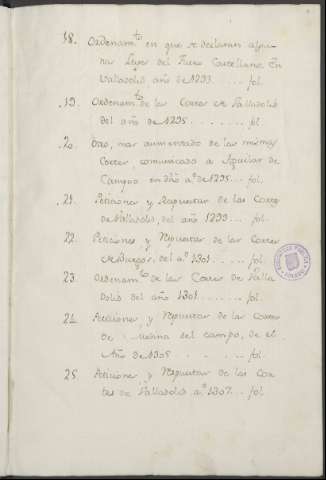 18. Ordenam.to en que se declaran algu-
nas Leyes del Fuero Castellano. En
Valladolid año de 1293. . . . . fol.
19. Ordenam.to de las Cortes de Valladolid
del año de 1295. . . . . . fol.
20. Otro, mas aumentado de las mismas
Cortes, comunicado a Aguilar de
Campoo en dho a.o de 1295. . . fol.
21. Peticiones y Respuestas de las Cortes
de Valladolid, del año 1299. . . fol.
22. Peticiones y Respuestas de las Cortes
de Burgos, del a.o 1301. . . . . fol.
23. Ordenam.to de las Cortes de Valla
dolid del año 1301. . . . . . . fol.
24. Peticiones y Respuestas de las Cortes
de Medina del Campo, de el
Año de 1305 . . . . . . fol.
25. Peticiones y Respuestas de las Cor-
tes de Valladolid a.o 1307. . . fol.